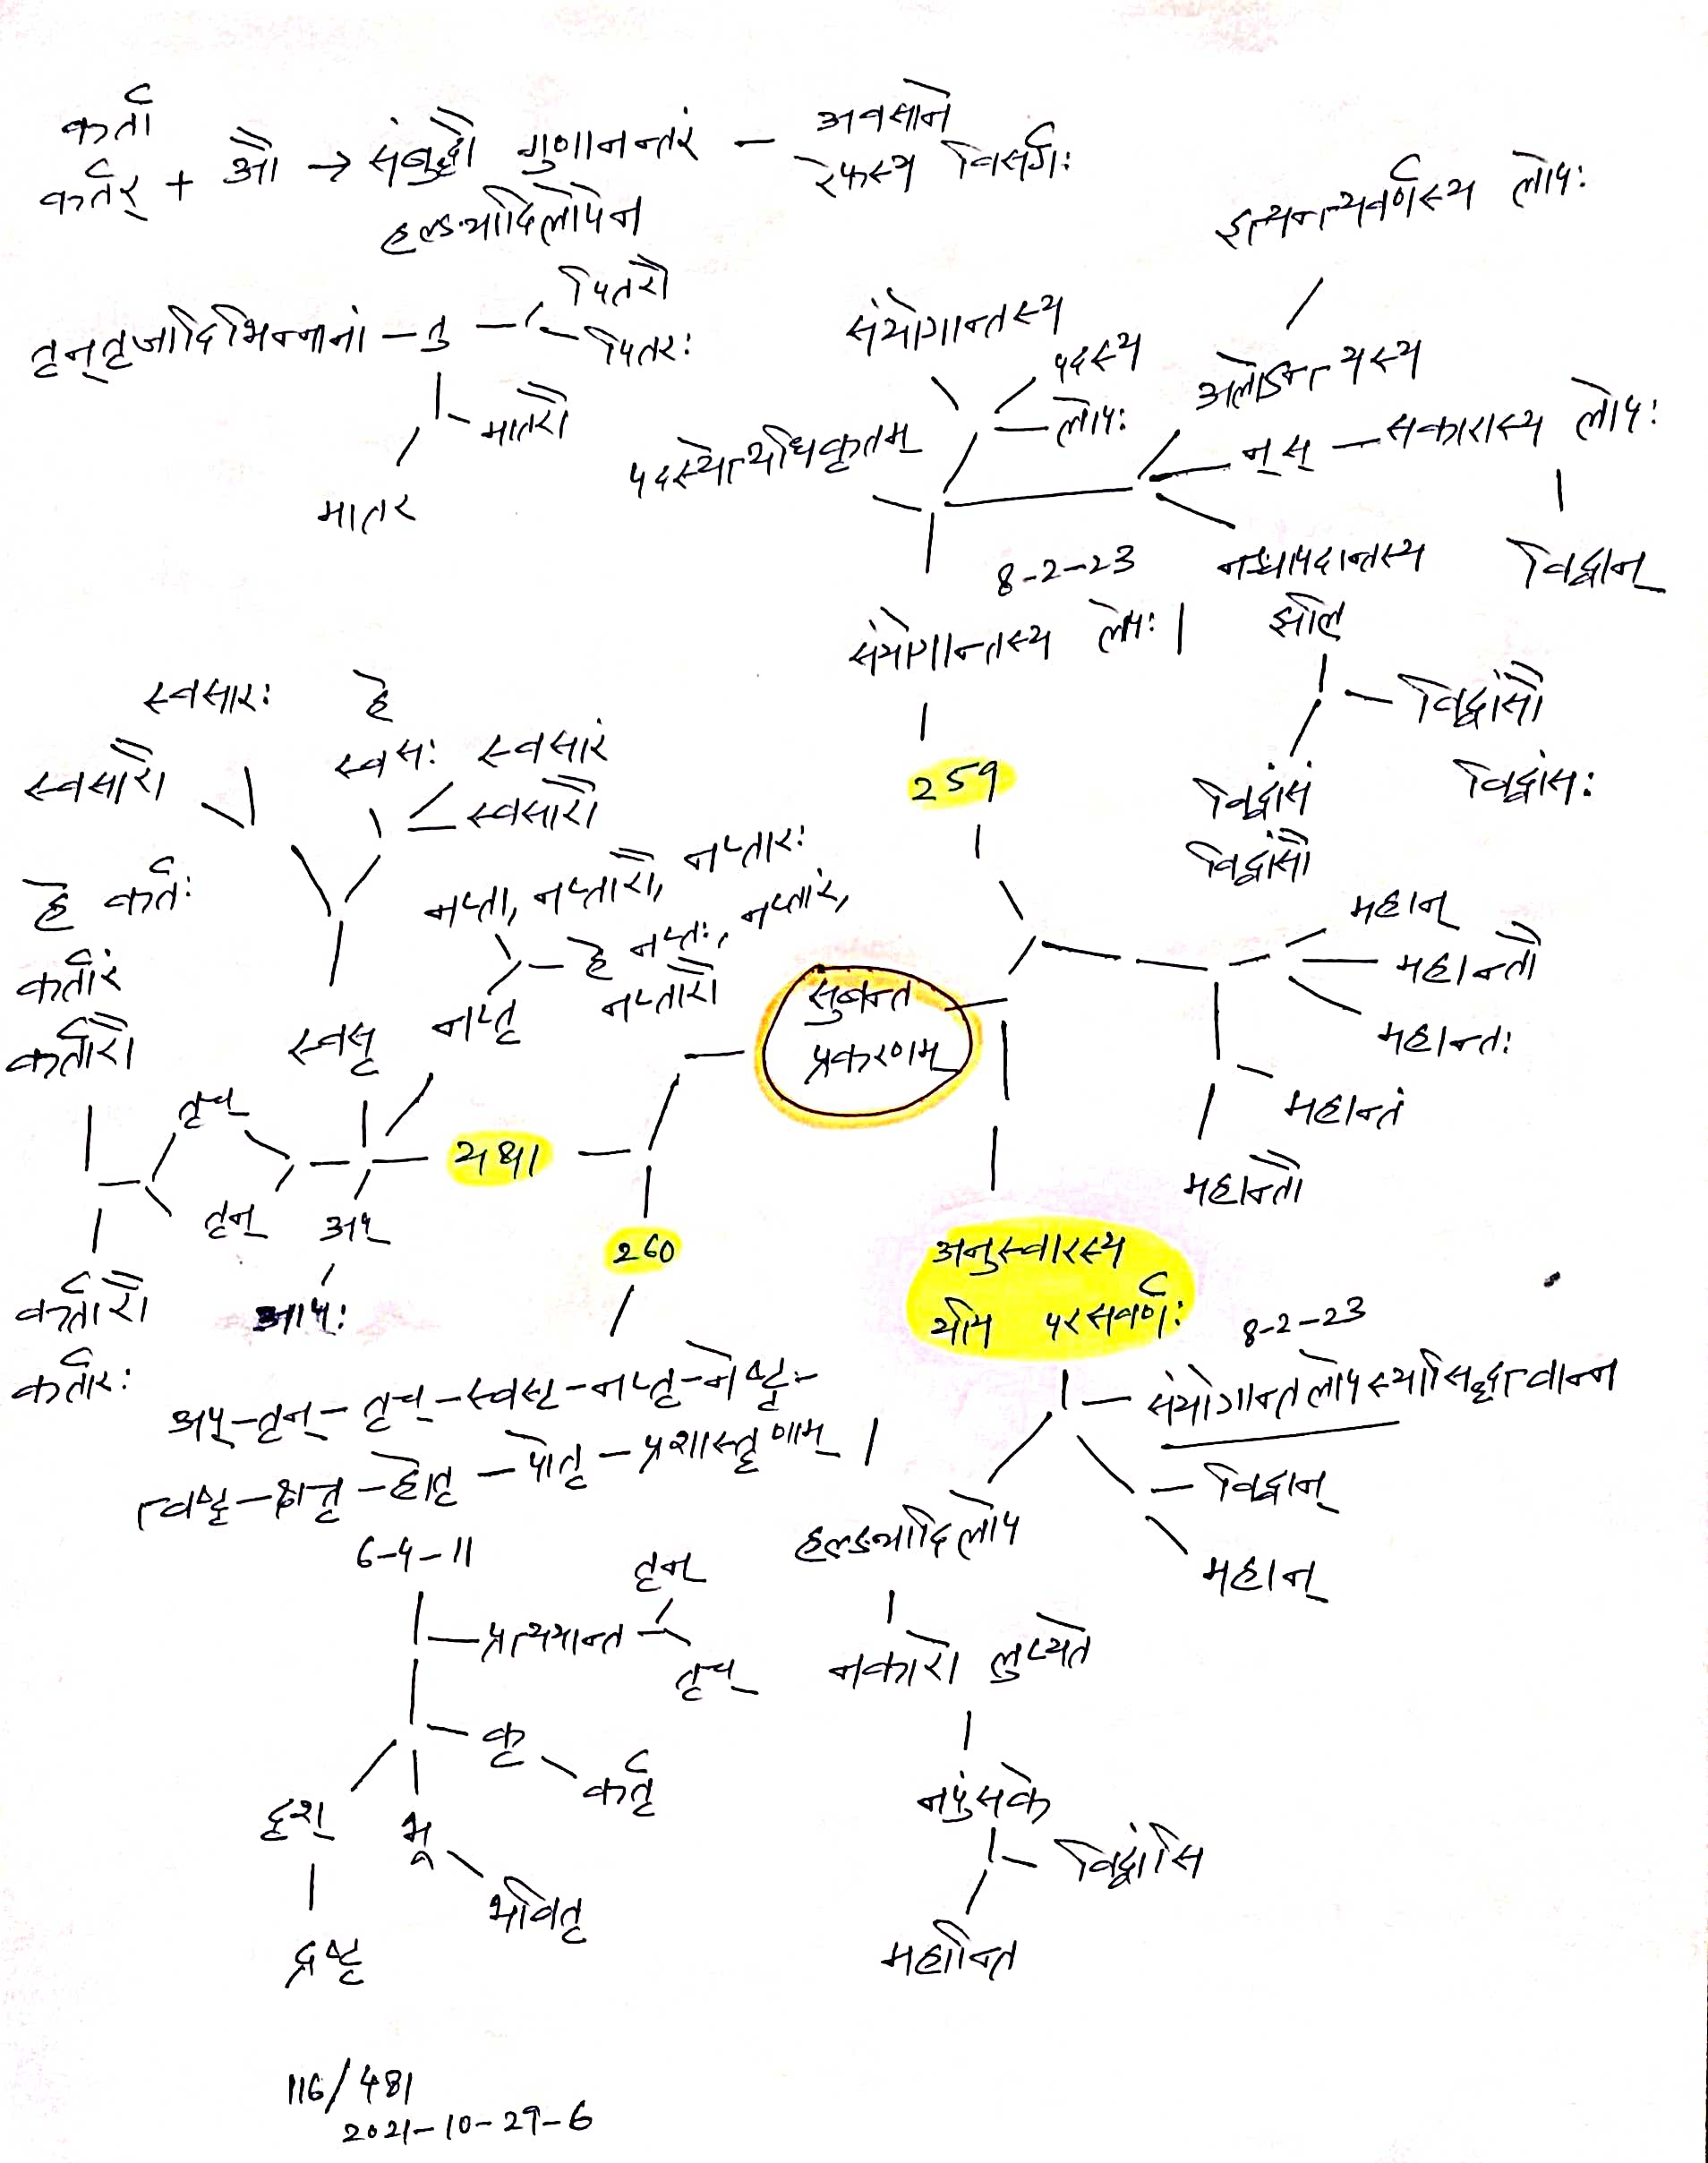 कर्ता
कर्तर् + औ → संबुद्धौ गुणानन्तरं – अवसाने
हल्ङ्यादिलोपेन
रेफस्य विसर्गः
तृन्तृजादिभिन्नानां – तु – पितरौ
पितरः
मातरौ
मातर
इत्यन्त्यवर्णस्य लोपः
संयोगान्तस्य
पदस्य
लोपः
अलोऽन्त्यस्य
पदस्येत्यधिकृतम्
न् स् – सकारास्य लोपः
विद्वान्
8-2-23
नश्चापदान्तस्य
झलि
संयोगान्तस्य लोपः |
विद्वांसौ
विद्वांसः
विद्वांसं
विद्वांसौ
259
स्वसारः
हे
स्वसः
स्वसारं
स्वसारौ
स्वसारौ
हे कर्तः
कर्तारं
कर्तारौ
नप्ता, नप्तारौ, नप्तारः
हे नप्तः, नप्तारं,
नप्तारौ
स्वसृ
नप्तृ
सुबन्त
प्रकरणम्
महान्
महान्तौ
महान्तः
महान्तं
महान्तौ
तृच्
तृन्
अप्
आपः
यथा
260
कर्तारौ
कर्तारः
अनुस्वारस्य
ययि परसवर्णः
8-2-23
संयोगान्तलोपस्यासिद्धत्वान्न
विद्वान्
महान्
अप्–तृन्–तृच्–स्वसृ–नप्तृ–नेष्टृ–
त्वष्टृ–क्षत्तृ–होतृ–पोतृ–प्रशास्तॄणाम् |
6-4-11
प्रत्ययान्त
तृन्
तृच्
कृ
कर्तृ
दृश्
द्रष्टृ
भू
भवितृ
हल्ङ्यादिलोप
नकारो लुप्यते
नपुंसके
विद्वांसि
महान्ति
116/481
2021-10-29-6